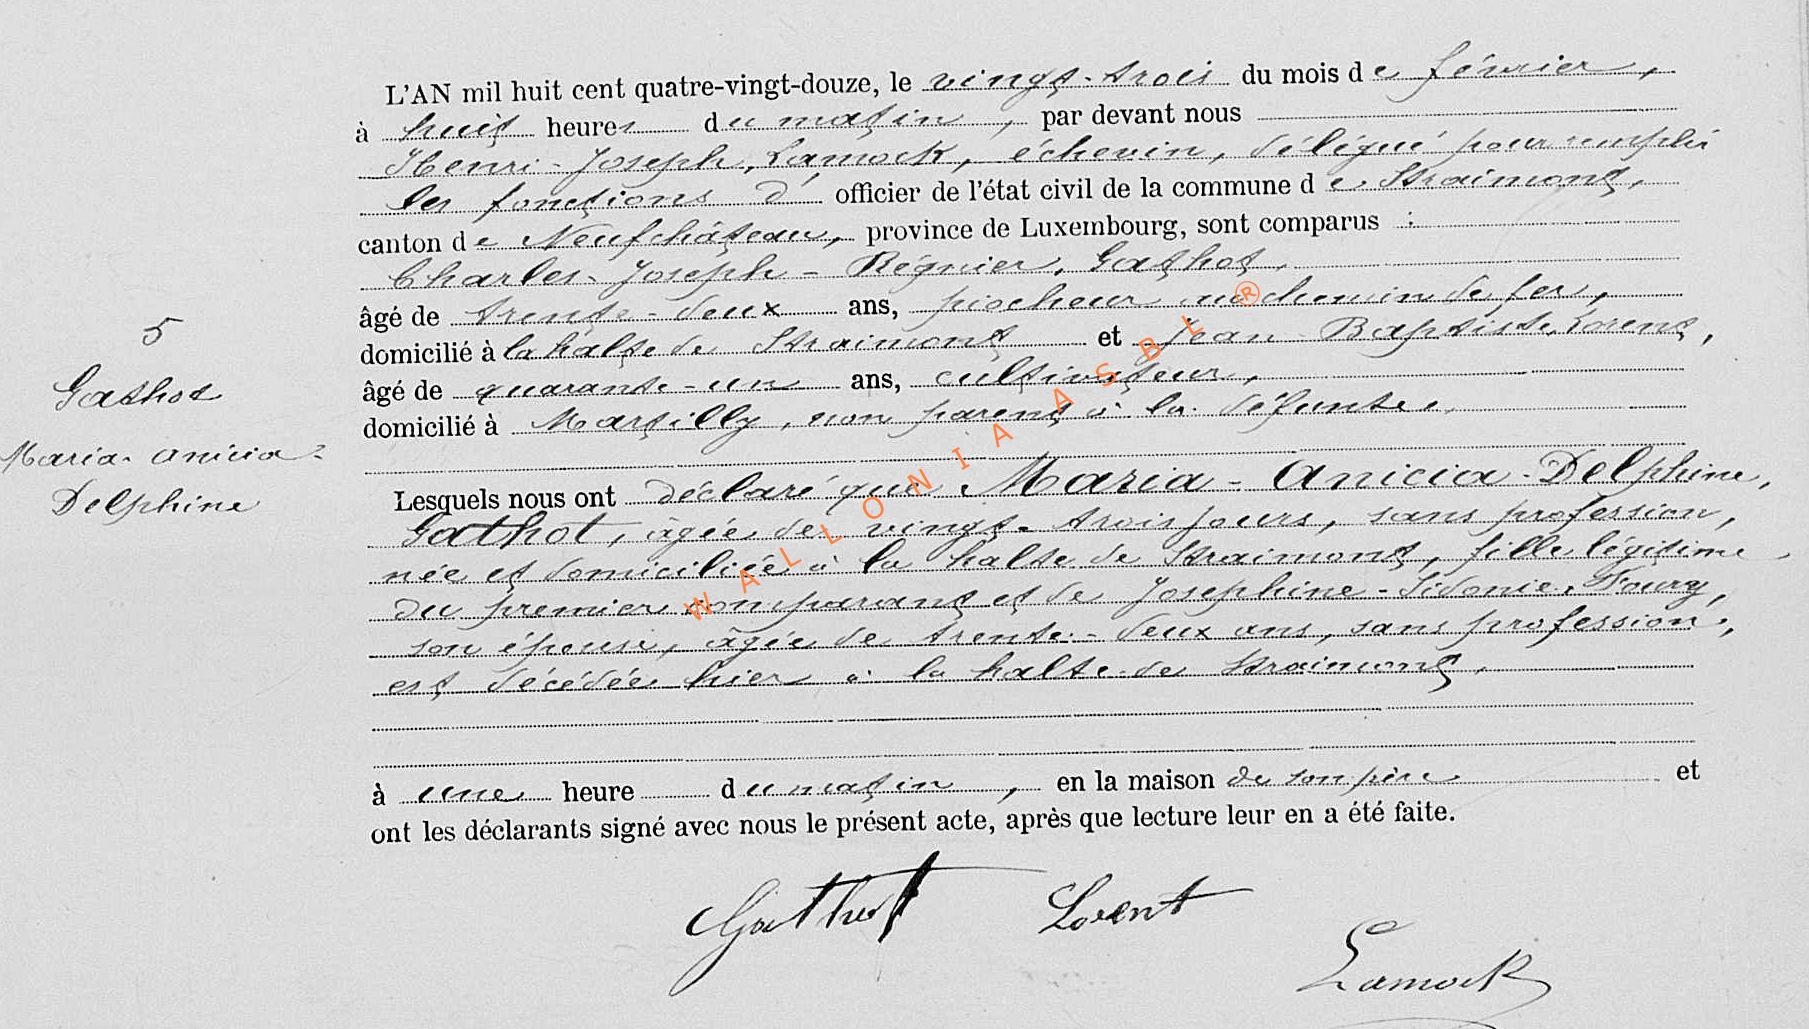 L'AN mil huit cent quatre-vingt-douze, le vingt-trois du mois de février,
à huit heures du matin, par devant nous
Henri-Joseph, Lamock, échevin, délégué pour remplir
les fonctions d' officier de l'état civil de la commune de Straimont,
canton de Neufchâteau, province de Luxembourg, sont comparus :
Charles-Joseph-Régnier, Gathot,
âgé de trente-deux ans, piocheur au chemin de fer,
domicilié à la halte de Straimont et Jean-Baptiste, Lorent,
âgé de quarante-un ans, cultivateur,
domicilié à Martilly, non parent à la défunte.
5
Gathot
Maria-Anicia-
Delphine
Lesquels nous ont déclaré que Maria-Anicia-Delphine,
Gathot, âgée de vingt-trois jours, sans profession,
née et domiciliée à la halte de Straimont, fille légitime
du premier comparant et de Josephine-Sidonie, Fourg,
son épouse, âgée de trente-deux ans, sans profession,
est décédée hier à la halte de Straimont,
à une heure du matin, en la maison de son père et
ont les déclarants signé avec nous le présent acte, après que lecture leur en a été faite.
Gathot Lorent
Lamock
WALLONIA ASBL ®